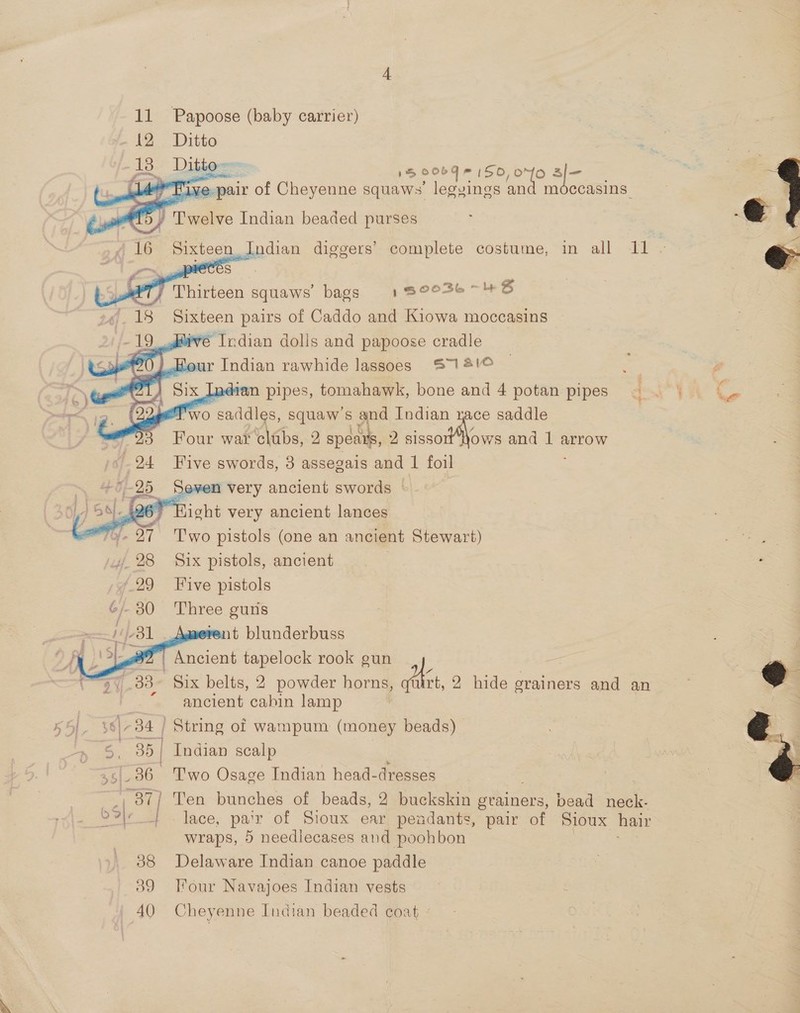 4
11 Papoose (baby carrier)
12 Ditto
13 Ditto
14 Five pair of Cheyenne squaws' leggings and moccasins
15 Twelve Indian beaded purses
16 Sixteen Indian diggers' complete costume, in all 11
pieces
17 Thirteen squaws' bags
18 Sixteen pairs of Caddo and Kiowa moccasins
19 Five Indian dolls and papoose cradle
20 Four Indian rawhide lassoes
21 Six Indian pipes, tomahawk, bone and 4 potan pipes
22 Two saddles, squaw's and Indian race saddle
23 Four war clubs, 2 spears, 2 bows and 1 arrow
24 Five swords, 3 assegais and 1 foil
25 Seven very ancient swords
26 Eight very ancient lances
27 Two pistols (one an ancient Stewart)
28 Six pistols, ancient
29 Five pistols
30 Three guns
31 blunderbuss
32 Ancient tapelock rook gun
33 Six belts, 2 powder horns, quirt, 2 hide grainers and an
ancient cabin lamp
34 String of wampum (money beads)
35 Indian scalp
36 Two Osage Indian head-dresses
37 Ten bunches of beads, 2 buckskin grainers, bead neck-
lace, pair of Sioux ear pendants, pair of Sioux hair
wraps, 5 needlecases and poohbon
38 Delaware Indian canoe paddle
39 Four Navajoes Indian vests
40 Cheyenne Indian beaded coat